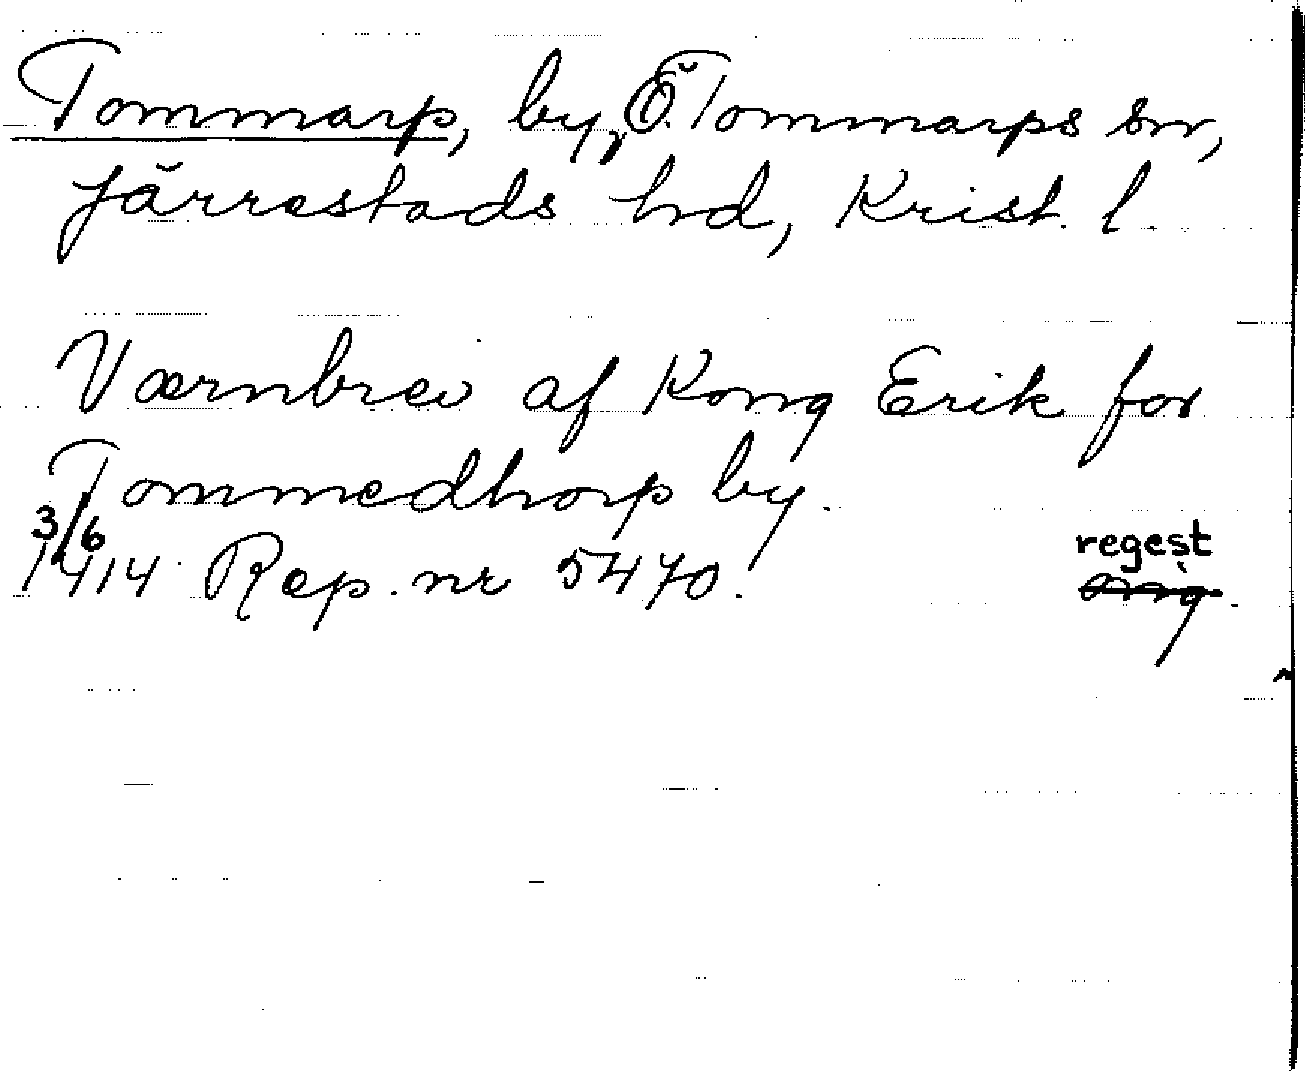 Tommarp, by, Ö. Tommarps sn,
Järrestads hd, Krist. l.
Værnbrev af Kong Erik for
Tommedhorp by.
3/6
1414 Rep. nr 5470.
regest